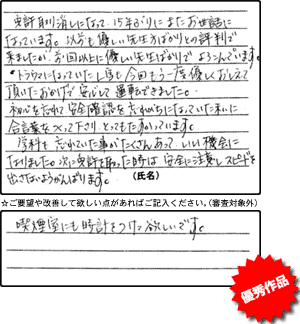 免許取り消しになって、15年ぶりにまたお世話に
なっています。以前も優しい先生ばかりとの評判で
来ましたが、今回以上に優しい先生ばかりでよろこんでいます。
トラウマになっていたL馬も今回もう一度優しくおしえて
頂いたおかげで安心して運転できました。
初心を忘れて安全確認を忘れがちになっていた私に
合言葉をつくって下さり、とってもたすかっています。
学科も忘れていた事がたくさんあって、いい機会に
なりました。次に免許を取った時は、安全に注意しスピードを
出さないようがんばります。 (氏名)
☆ご要望や改善して欲しい点があればご記入ください。(審査対象外)
喫煙室にも時計をつけて欲しいです。
優秀作品